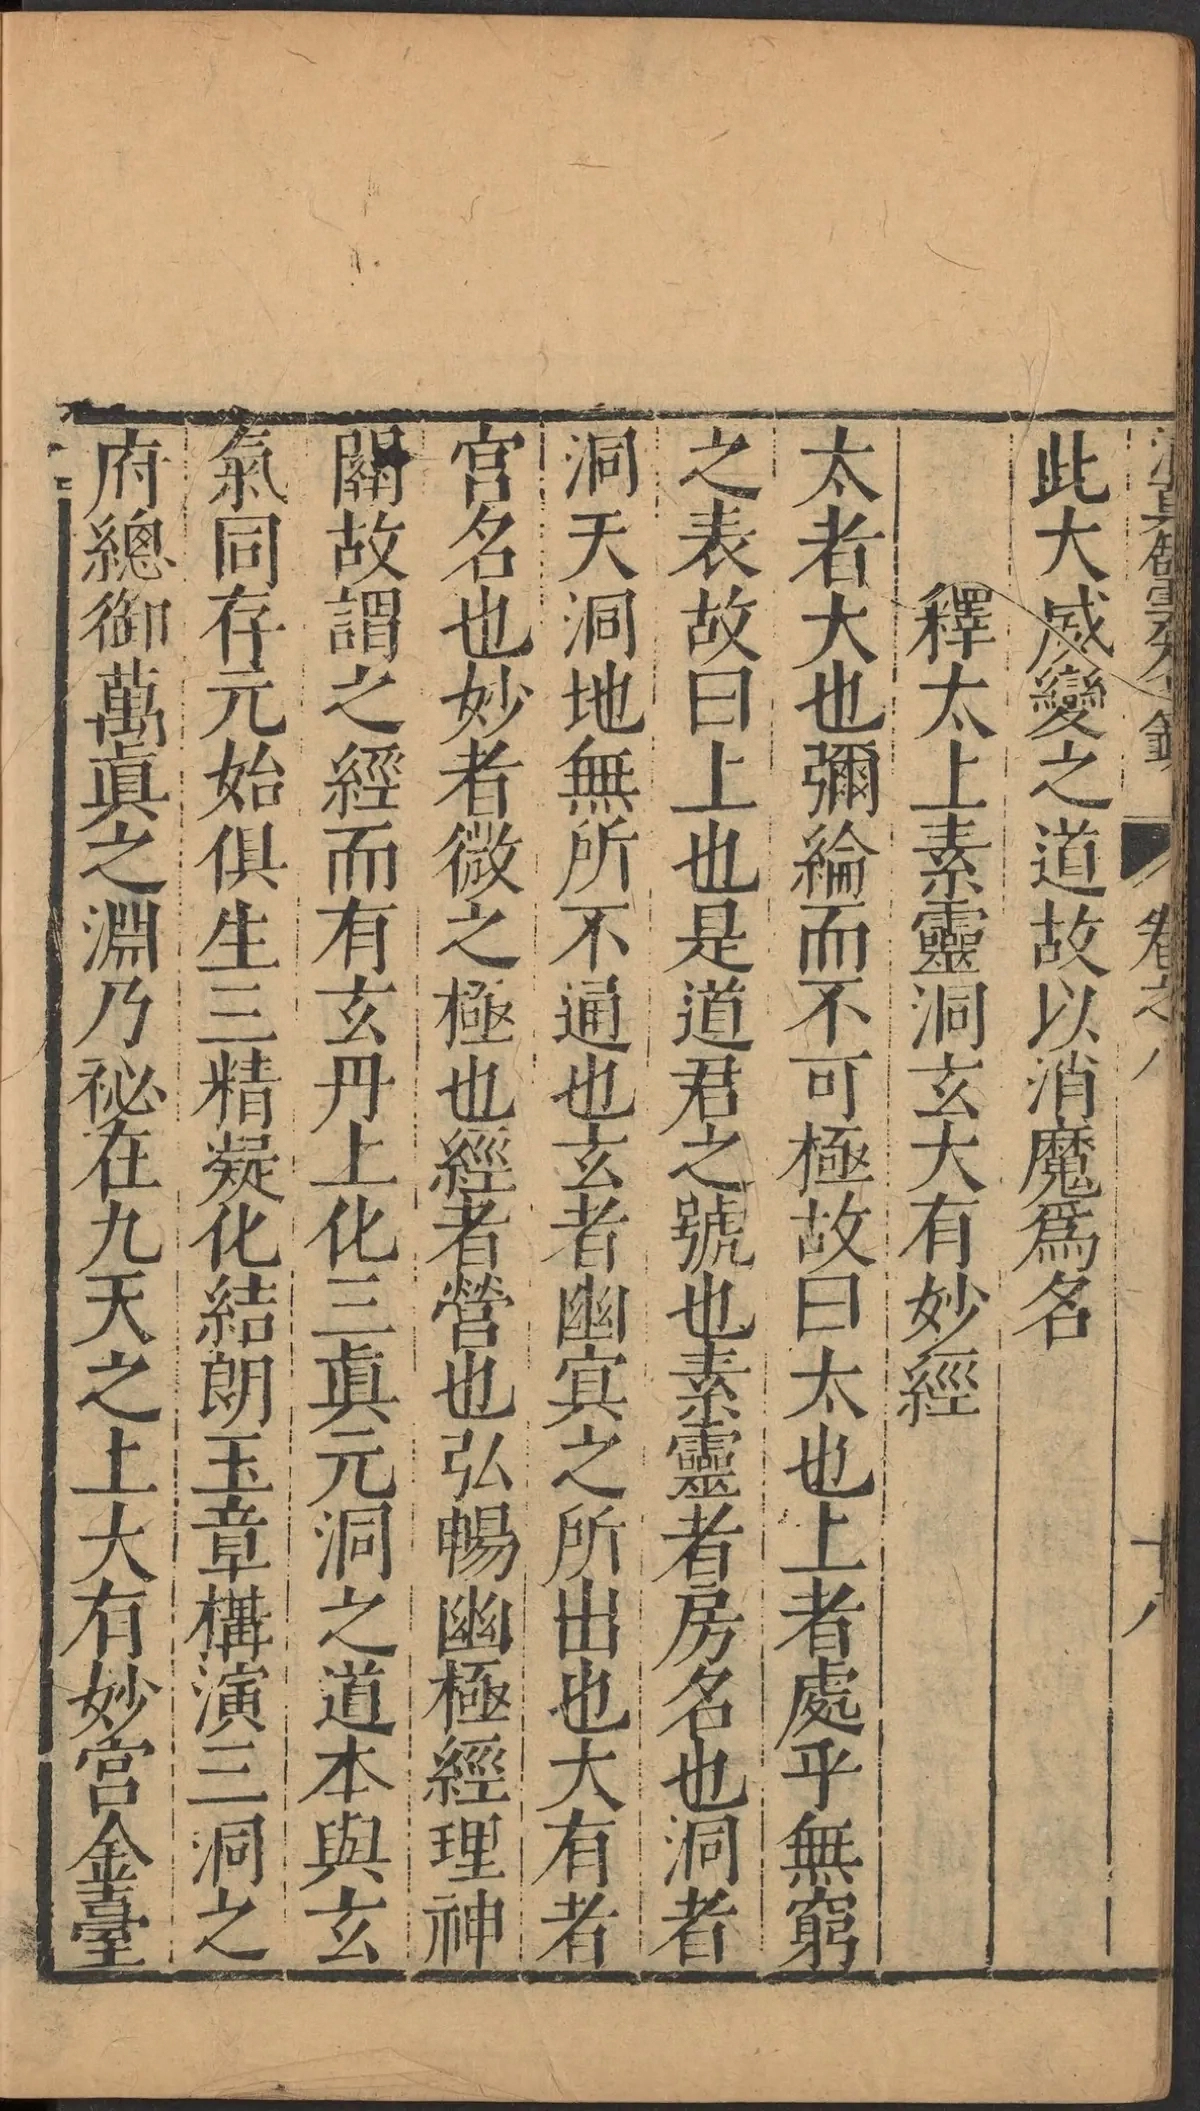 卷之八
十八
此大威變之道故以消魔爲名
釋太上素靈洞玄大有妙經
太者大也彌綸而不可極故曰太也上者處乎無窮
之表故曰上也是道君之號也素靈者房名也洞者
洞天洞地無所不通也玄者幽寘之所出也大有者
宮名也妙者微之極也經者營也弘暢幽極經理神
關故謂之經而有玄丹上化三眞元洞之道本與玄
氣同存元始俱生三精凝化結朗玉章構演三洞之
府總御萬眞之淵乃祕在九天之上大有妙宮金臺